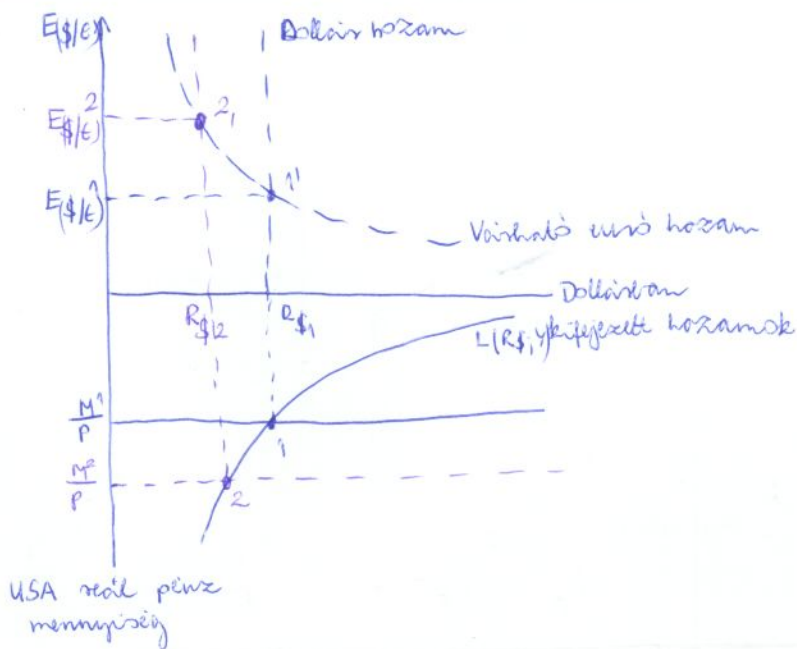 E($/€)
Dollár hozam
E($/€)²
2,
E($/€)¹
1'
Várható euró hozam
Dollárban
R$,2
R$,1
L(R$,Y) kifejezett hozamok
M¹/P
1
M²/P
2
USA reál pénz
mennyiség